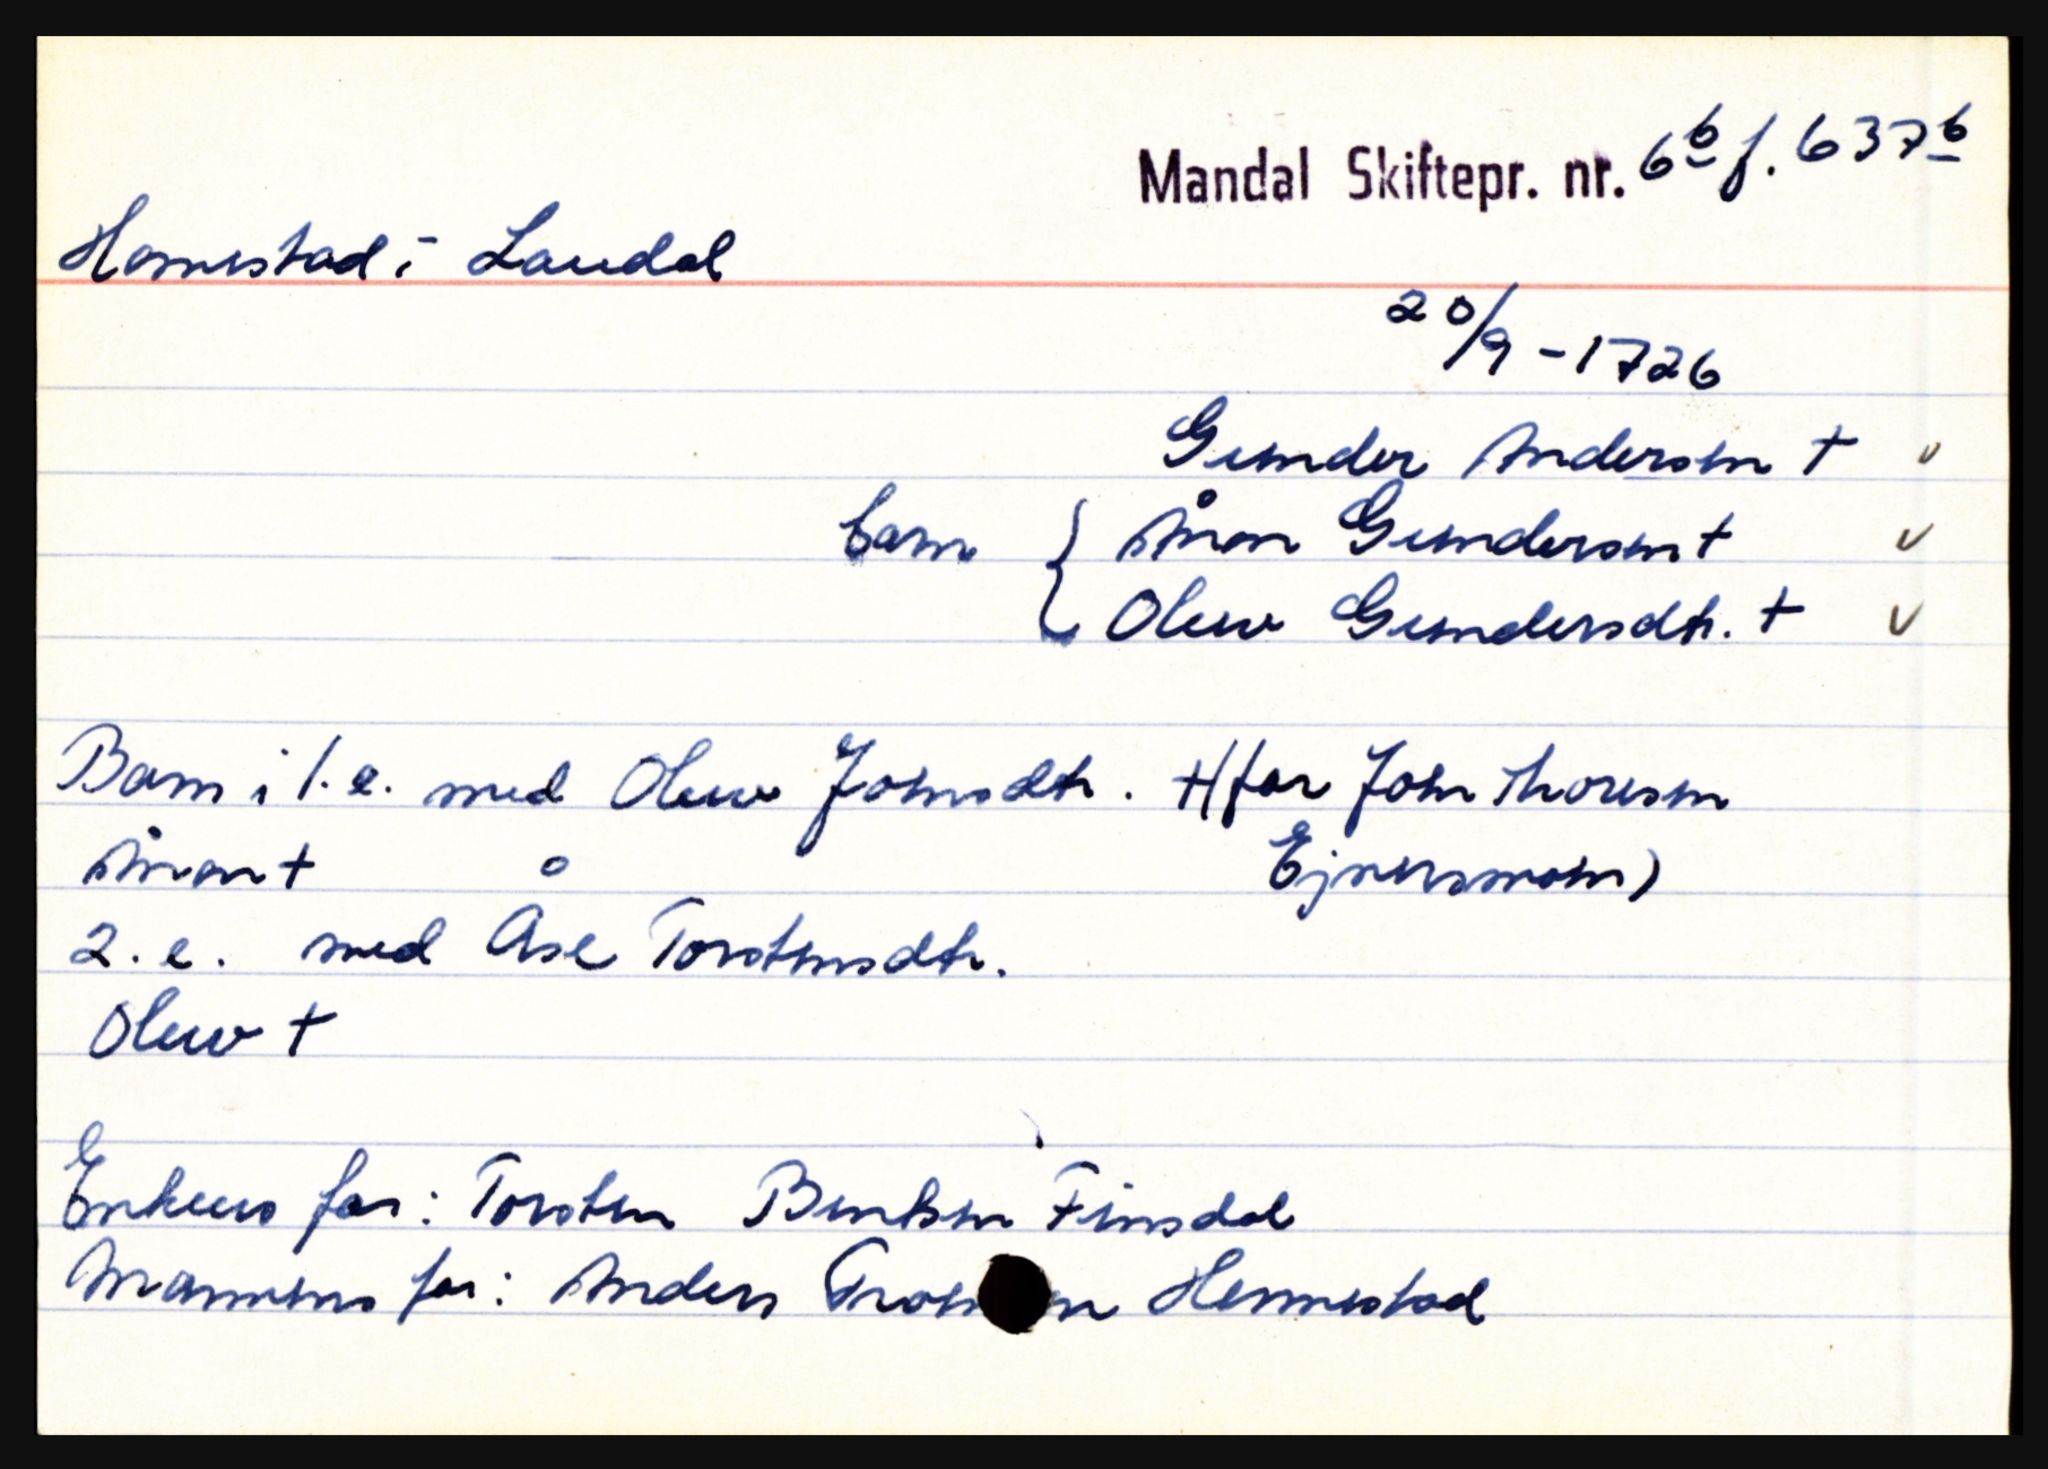 Mandal Skiftepr. nr. 6b f. 637b
Homestad i Laudal
20/9 - 1726
Gunder Andersen +
barn { Ånon Gundersen +
Oluv Gundersdtr. +
Barn i 1. e. med Oluv Johnsdtr. + (far John Thoresen
Ånon + Ejnersmoen)
2. e. med Åse Torstensdtr.
Oluv +
Enkens far: Torsten Bentsen Finsdal
Mannens far: Anders Hennestad